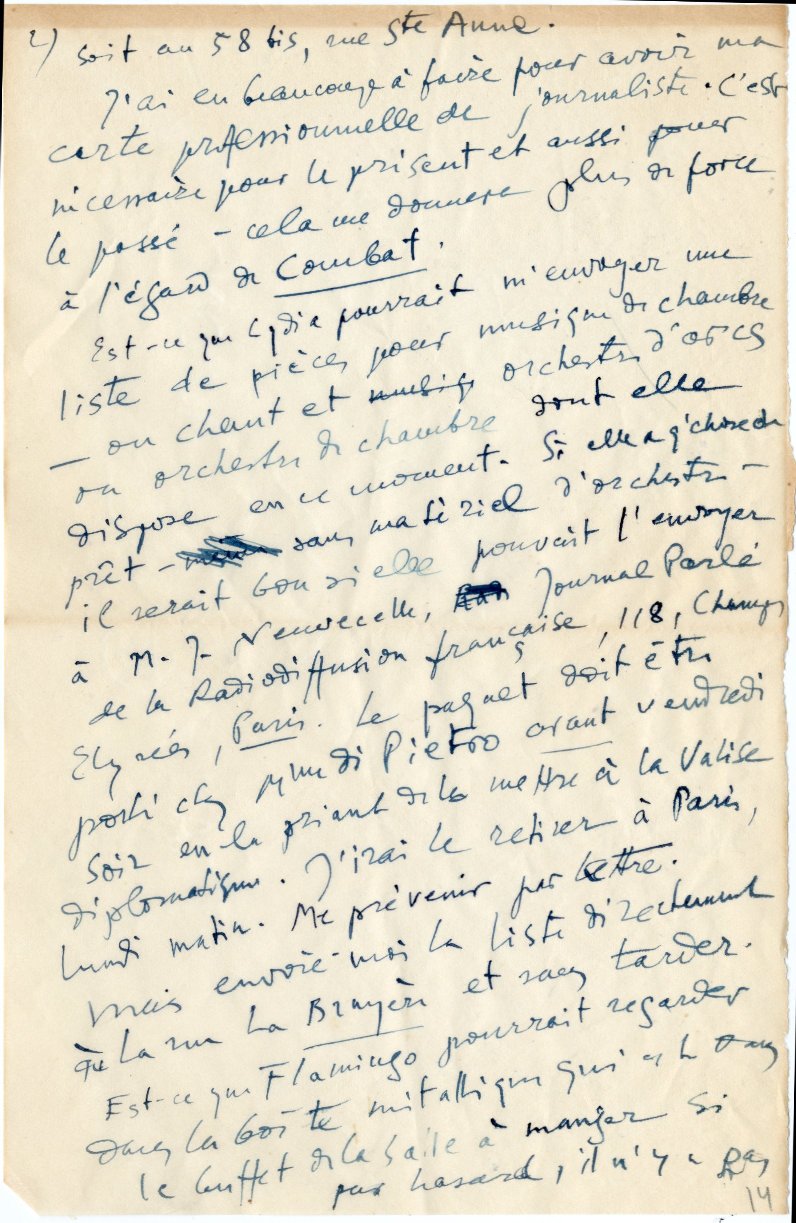 2) soit au 58 bis, rue Ste Anne.
J'ai eu beaucoup à faire pour avoir ma
carte professionnelle de journaliste. C'est
nécessaire pour le présent et aussi pour
le passé – cela me donnera plus de force
à l'égard de Combat.
Est-ce que Lydia pourrait m'envoyer une
liste de pièces pour musique de chambre
– ou chant et musiq orchestre d'arcs
ou orchestre de chambre dont elle
dispose en ce moment. Si elle a q'chose de
prêt – sans matériel d'orchestre –
il serait bon si elle pouvait l'envoyer
à M. J. Neuvecelle, Journal Parlé
de la Radiodiffusion française, 118, Champs
Elysées, Paris. Le paquet doit être
porté chez Mme di Pietro avant vendredi
soir en la priant de le mettre à la Valise
diplomatique. J'irai le retirer à Paris,
lundi matin. Me prévenir par lettre.
Mais envoie-moi la liste directement
à la rue La Bruyère et sans tarder.
Est-ce que Flamingo pourrait regarder
dans la boîte métallique qui est dans
le buffet de la salle à manger si
par hasard, il n'y a pas
14